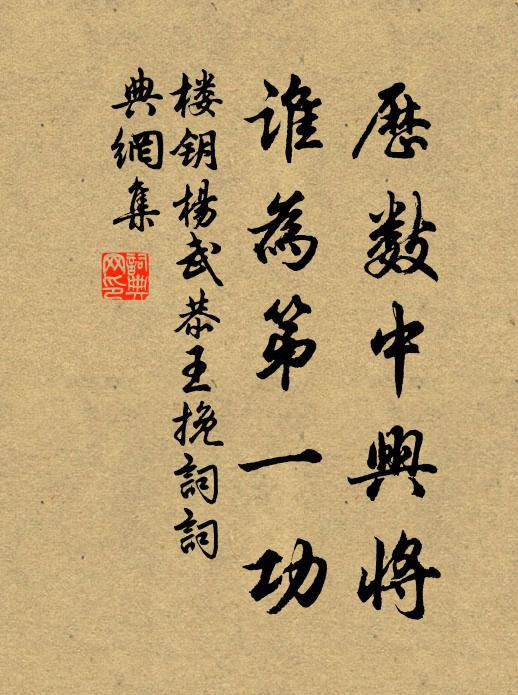 歷數中興將
誰為第一功
楼钥楊武恭王挽詞詞
典網集
詞典
网印